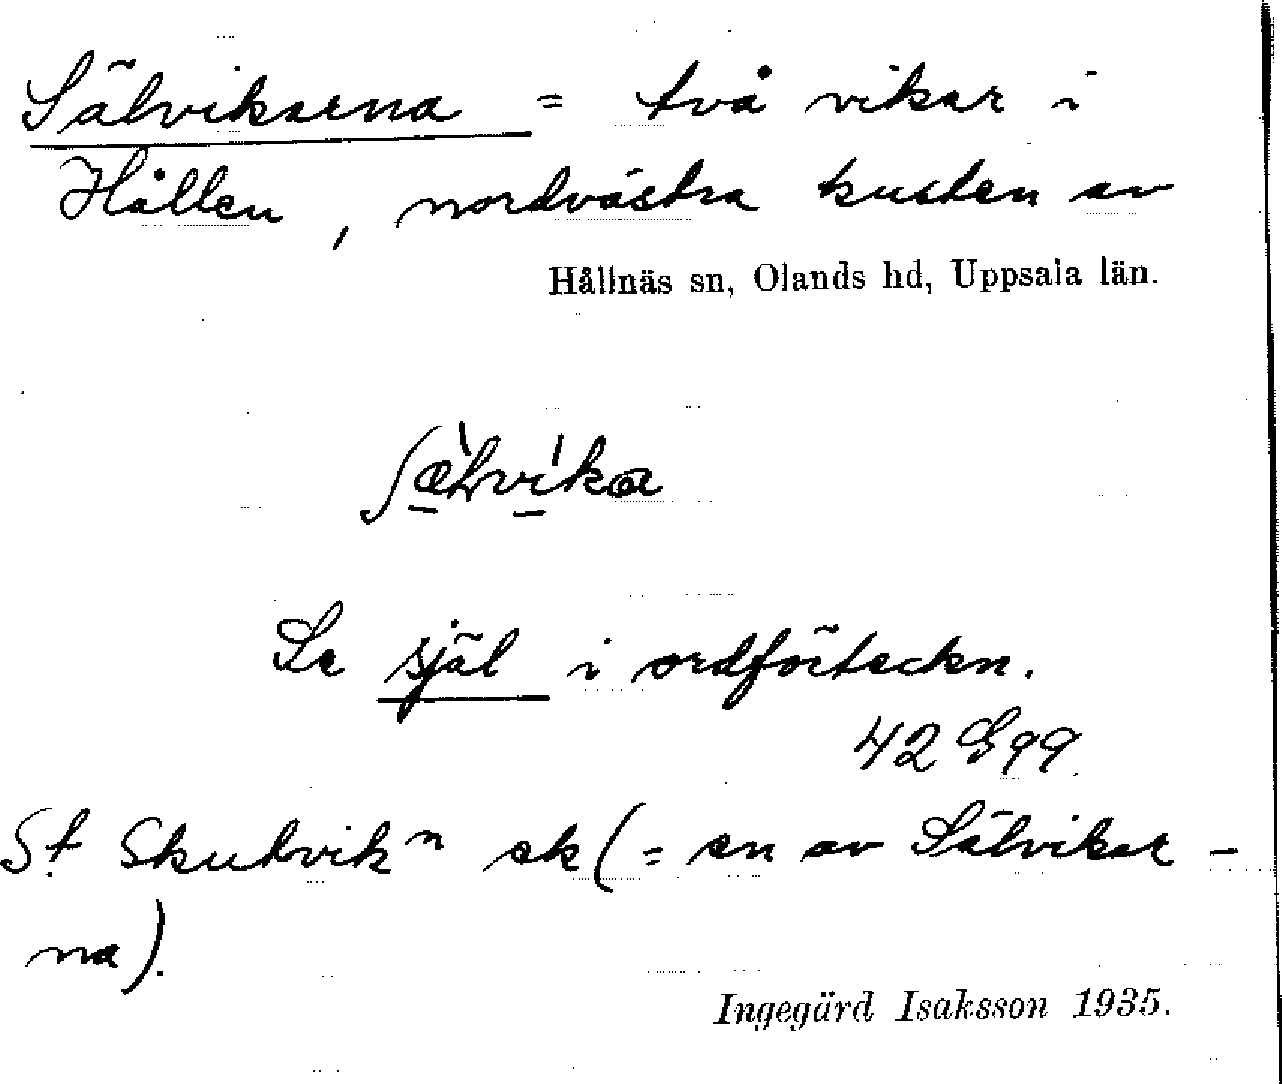 Sälvikarna = två vikar i
Hållen, nordvästra kusten av
Hållnäs sn, Olands hd, Uppsala län.
Se själ i ordförteckn.
42 G 99
St. Skutvikn ek (= en av Sälvikar-
na).
Ingegärd Isaksson 1935.